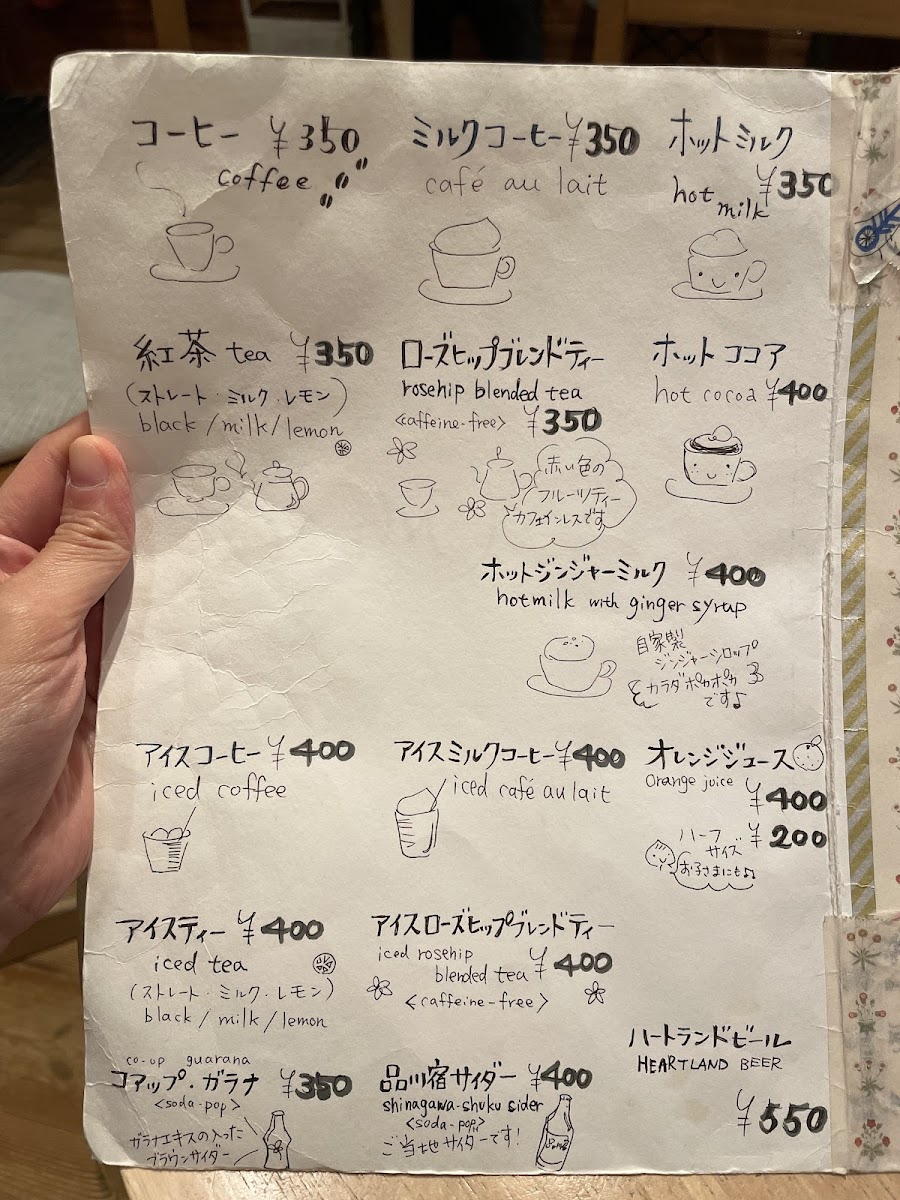 コーヒー ¥350
coffee
ミルクコーヒー ¥350
café au lait
ホットミルク
¥350
hot milk
紅茶 tea ¥350
(ストレート・ミルク・レモン)
black/milk/lemon
ローズヒップブレンドティー
rosehip blended tea
<caffeine-free> ¥350
赤い色の
フルーツティー
カフェインレスです
ホットココア
hot cocoa ¥400
ホットジンジャーミルク ¥400
hotmilk with ginger syrup
自家製
ジンジャーシロップ
カラダポカポカ
です♪
アイスコーヒー ¥400
iced coffee
アイスミルクコーヒー ¥400
iced café au lait
オレンジジュース
Orange juice
¥400
ハーフ
サイズ ¥200
お子さまにも♪
アイスティー ¥400
iced tea
(ストレート・ミルク・レモン)
black/milk/lemon
アイスローズヒップブレンドティー
iced rosehip
blended tea ¥400
<caffeine-free>
ハートランドビール
HEARTLAND BEER
¥550
co-op guarana
コアップ・ガラナ ¥350
<soda-pop>
ガラナエキスの入った
ブラウンサイダー
品川宿サイダー ¥400
shinagawa-shuku sider
<soda-pop>
ご当地サイダーです!